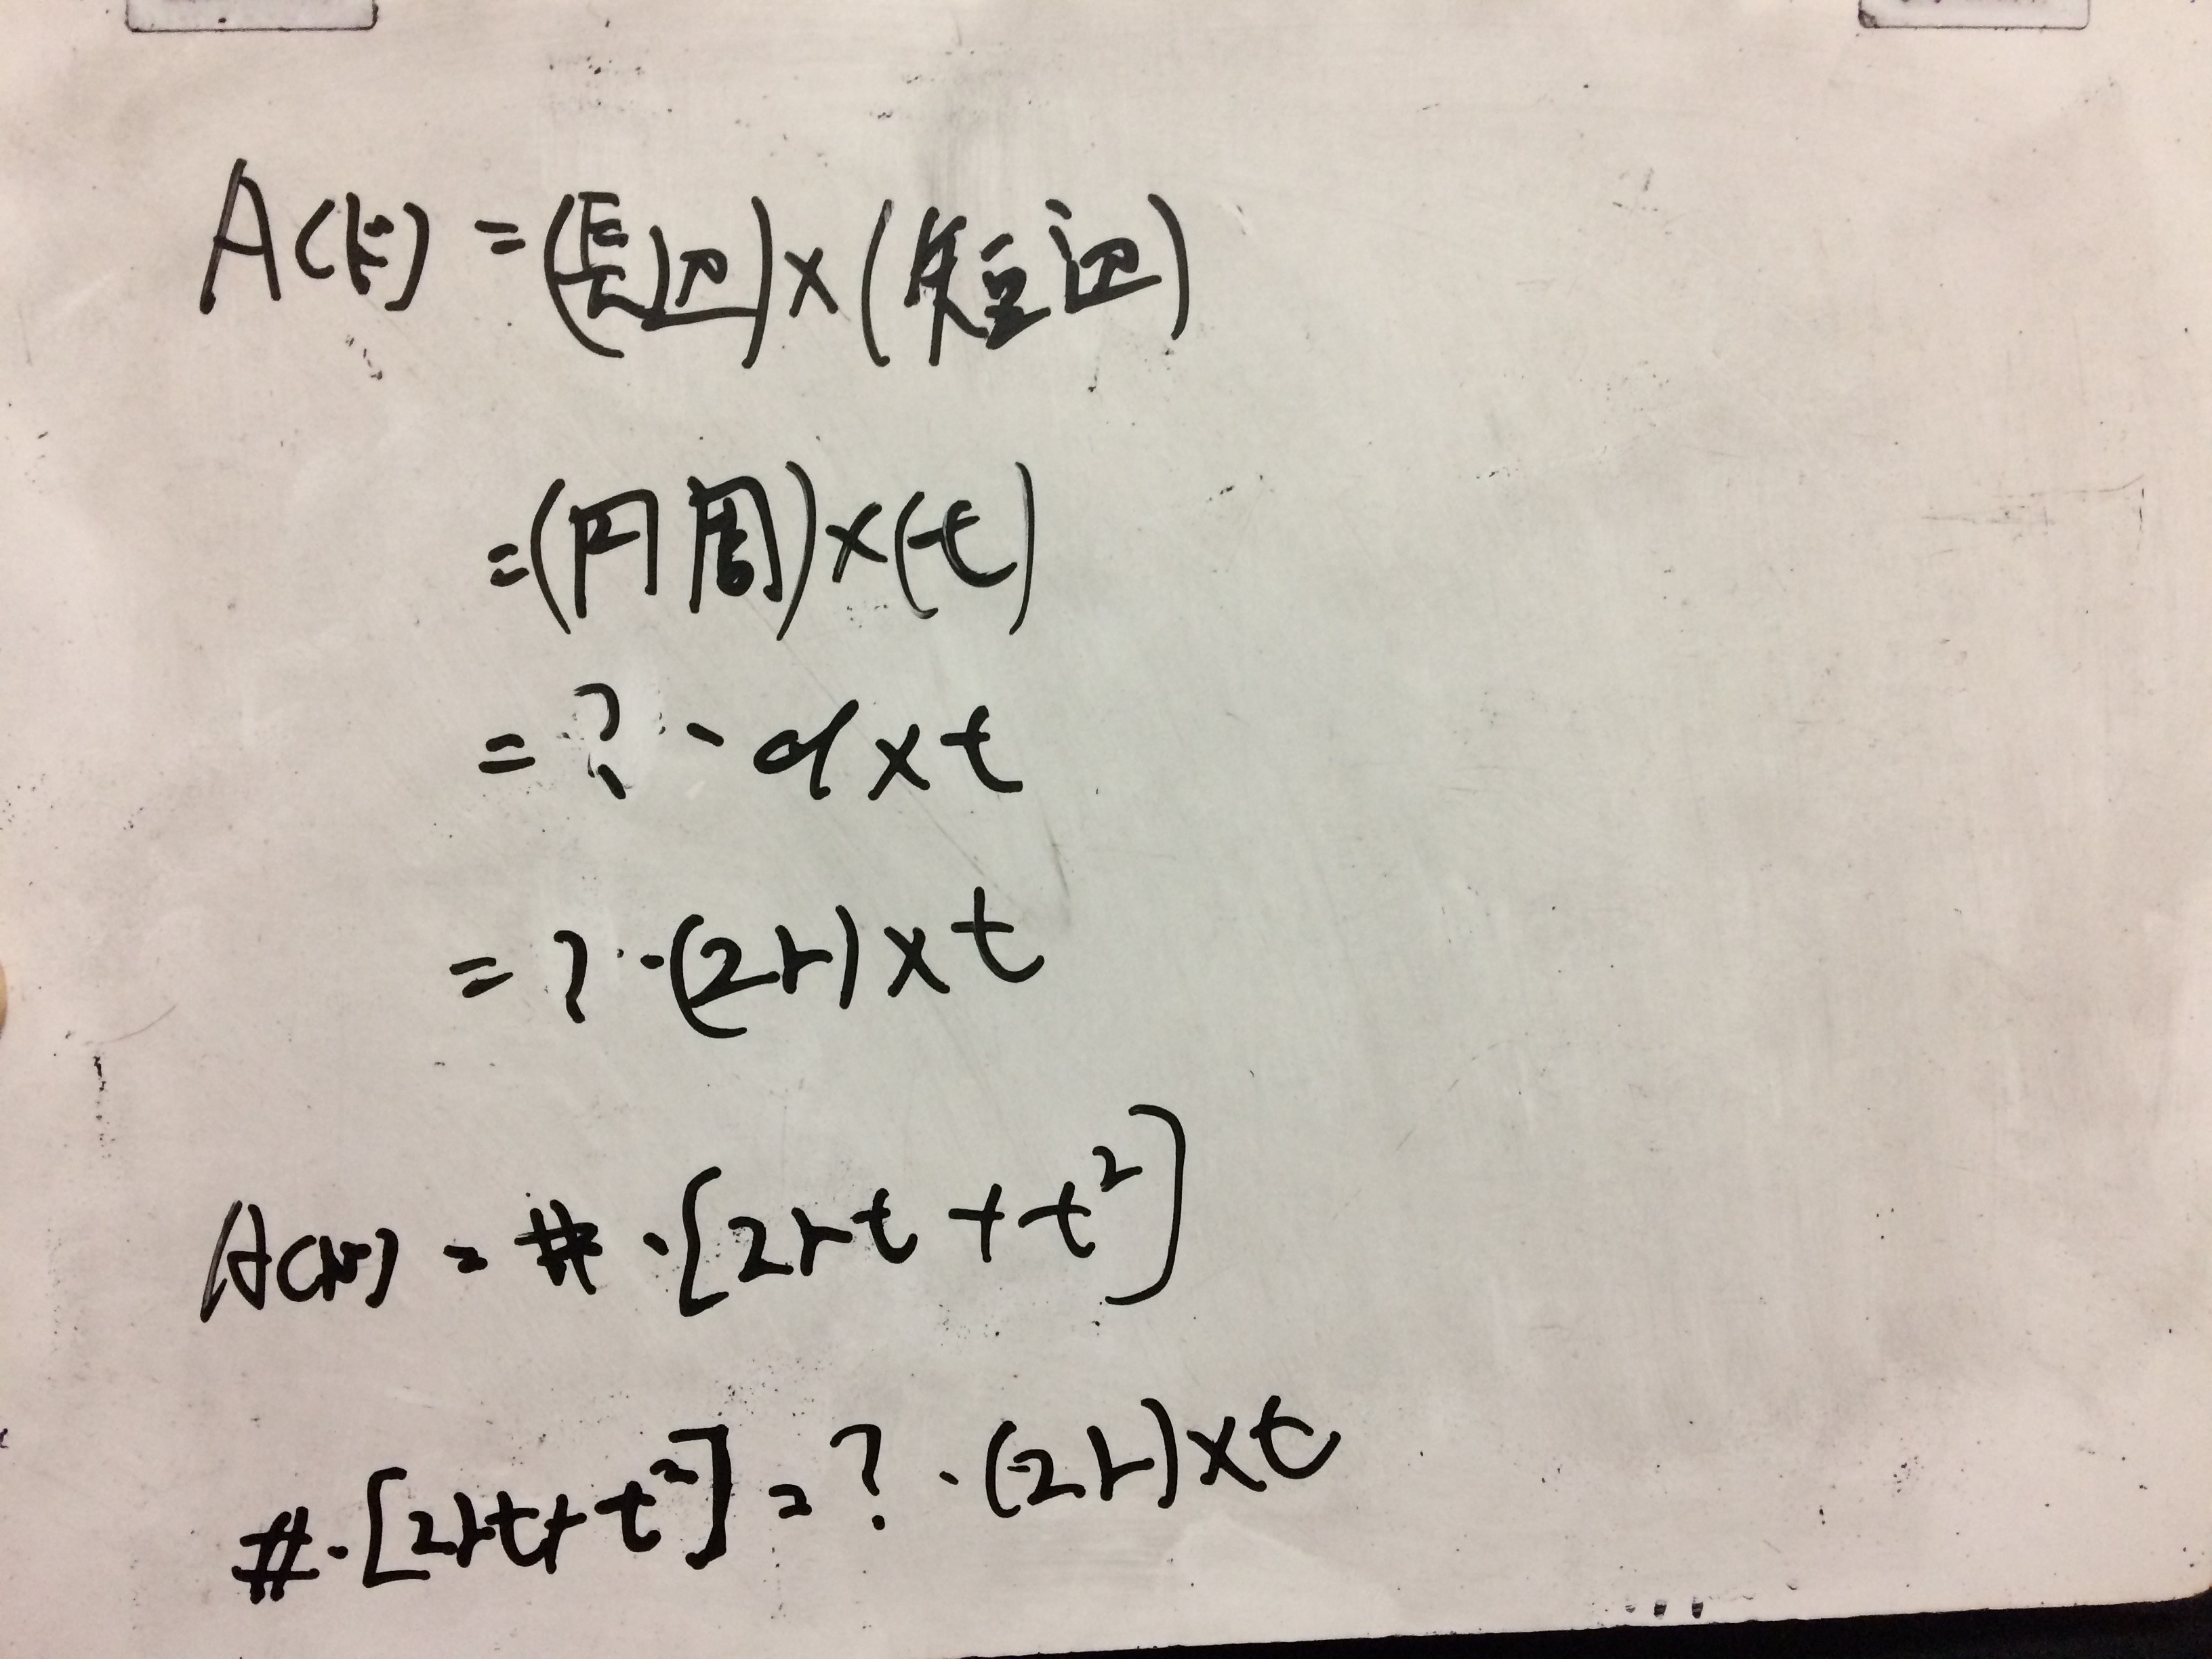 A(長) = (長辺) × (短辺)
= (円周) × (t)
= ? · d × t
= ? · (2r) × t
= # · [2rt + t²]
# · [2rt + t²] = ? · (2r) × t